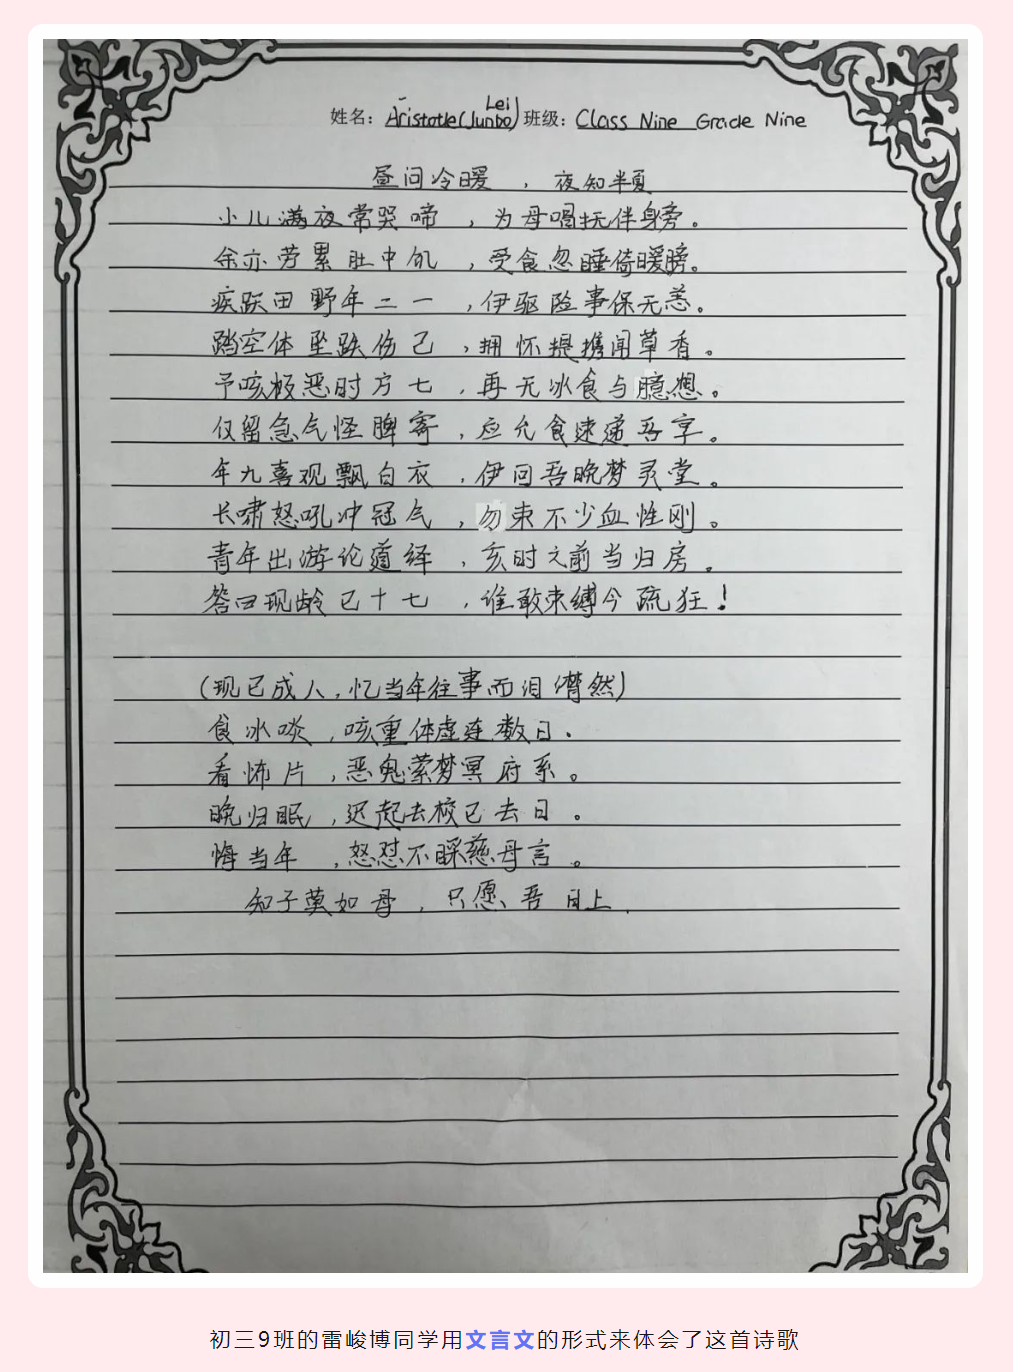 姓名：Aristotle(Junbo Lei) 班级：Class Nine Grade Nine
昼问冷暖，夜知半夏
小儿满夜常哭啼，为母唱抚伴身旁。
余亦劳累肚中饥，受食忽睡倚暖膀。
疾跃田野年二一，伊驱险事保无恙。
踏空体坠跌伤己，拥怀提携闻草香。
予咳极恶时方七，再无冰食与臆想。
仅留急气怪脾寄，应允食速递吾享。
年九喜观飘白衣，伊问吾晚梦灵堂。
长啸怒吼冲冠气，勿束不少血性刚。
青年出游论道绎，亥时之前当归房。
答曰现龄已十七，谁敢束缚今疏狂！
（现已成人，忆当年往事而泪潸然）
食冰啖，咳重体虚连数日。
看怖片，恶鬼萦梦冥府系。
晚归眠，迟起去校已去日。
悔当年，怒怼不睬慈母言。
知子莫如母，只愿吾日上.
初三9班的雷峻博同学用文言文的形式来体会了这首诗歌